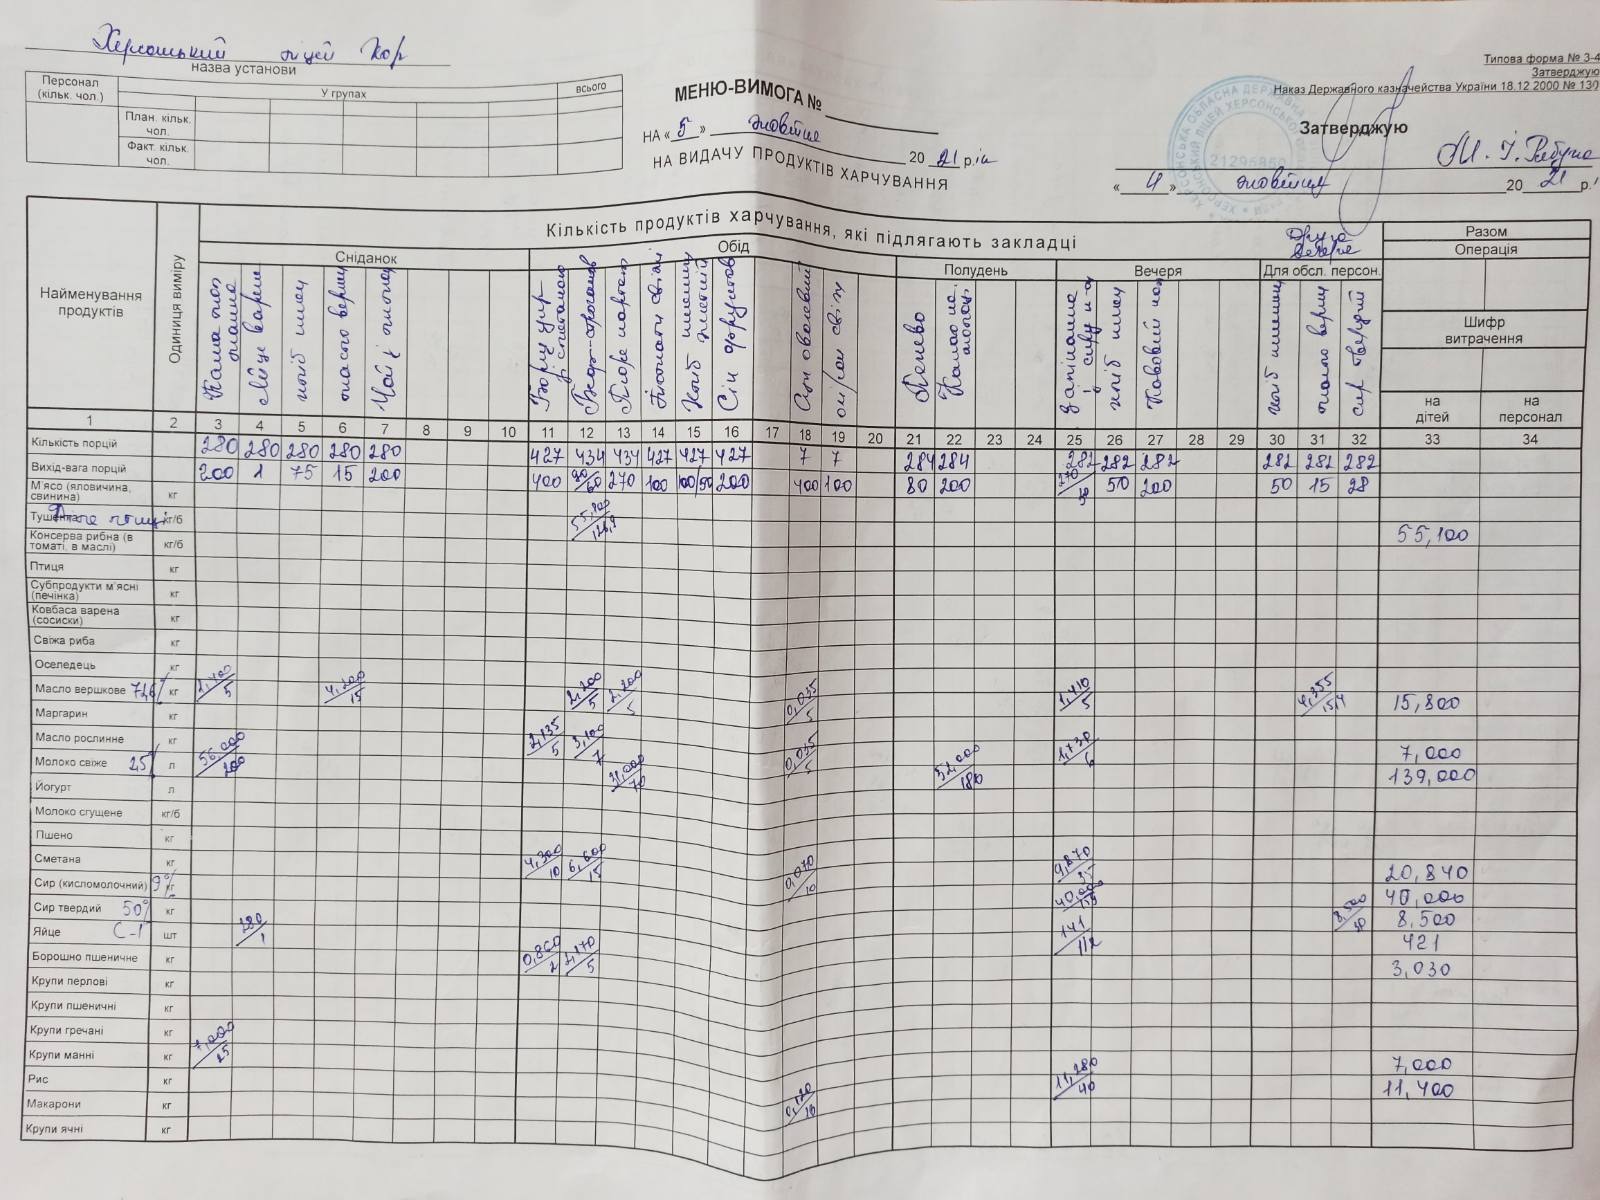 Херсонський ліцей Хор
назва установи
Персонал (кільк. чол.)
У групах
всього
План. кільк. чол.
Факт. кільк. чол.
МЕНЮ-ВИМОГА №
НА « 5 » жовтня 20 21 р.
НА ВИДАЧУ ПРОДУКТІВ ХАРЧУВАННЯ
Типова форма № З-4
Затверджую
Наказ Державного казначейства України 18.12 2000 № 130
Затверджую
« 4 » жовтня 20 21 р.
21295860
Найменування продуктів
Одиниця виміру
Кількість продуктів харчування, які підлягають закладці
Разом
Операція
Сніданок
Обід
Полудень
Вечеря
Друга вечеря
Для обсл. персон.
Шифр витрачення
на дітей
на персонал
Каша молочна манна
Яйце варене
хліб пшен
масло верш
Чай з лимоном
Борщ укр зі сметаною
Беф-строганов
Пюре картоп
Томати свіжі
Хліб пшенич житній
Сік фруктов
Суп овочевий
огірок свіж
Печиво
Какао на молоці
запіканка з сиру
хліб пшен
Кавовий нап
хліб пшенич
масло верш
сир твердий
1 2 3 4 5 6 7 8 9 10 11 12 13 14 15 16 17 18 19 20 21 22 23 24 25 26 27 28 29 30 31 32 33 34
Кількість порцій 280 280 280 280 280 427 434 434 427 427 427 7 7 284 284 282 282 282 282 282 282
Вихід-вага порцій 200 1 75 15 200 400 90/60 270 100 100/50 200 400 100 80 200 270/30 50 200 50 15 28
М'ясо (яловичина, свинина) кг
Тушенка кг/б 55,100
Консерва рибна (в томаті, в маслі) кг/б 55,100
Птиця кг
Субпродукти м'ясні (печінка) кг
Ковбаса варена (сосиски) кг
Свіжа риба кг
Оселедець кг
Масло вершкове кг 1,400/5 4,200/15 2,200/5 2,200/5 0,035/5 1,410/5 4,255 15,800
Маргарин кг
Масло рослинне кг 2,135/5 3,100/7 0,035/5 1,730/6 7,000
Молоко свіже 2,5% л 56,000/200 31,000/70 52,000/180 139,000
Йогурт л
Молоко сгущене кг/б
Пшено кг
Сметана кг 4,300/10 6,600/15 0,070/10 9,870/35 20,840
Сир (кисломолочний) 9% кг 40,000 40,000
Сир твердий 50% кг 8,500/30 8,500
Яйце С-1 шт 280/1 141/1/2 421
Борошно пшеничне кг 0,860/2 2,170/5 3,030
Крупи перлові кг
Крупи пшеничні кг
Крупи гречані кг
Крупи манні кг 7,000/25 7,000
Рис кг 11,280/40 11,400
Макарони кг 0,120
Крупи ячні кг